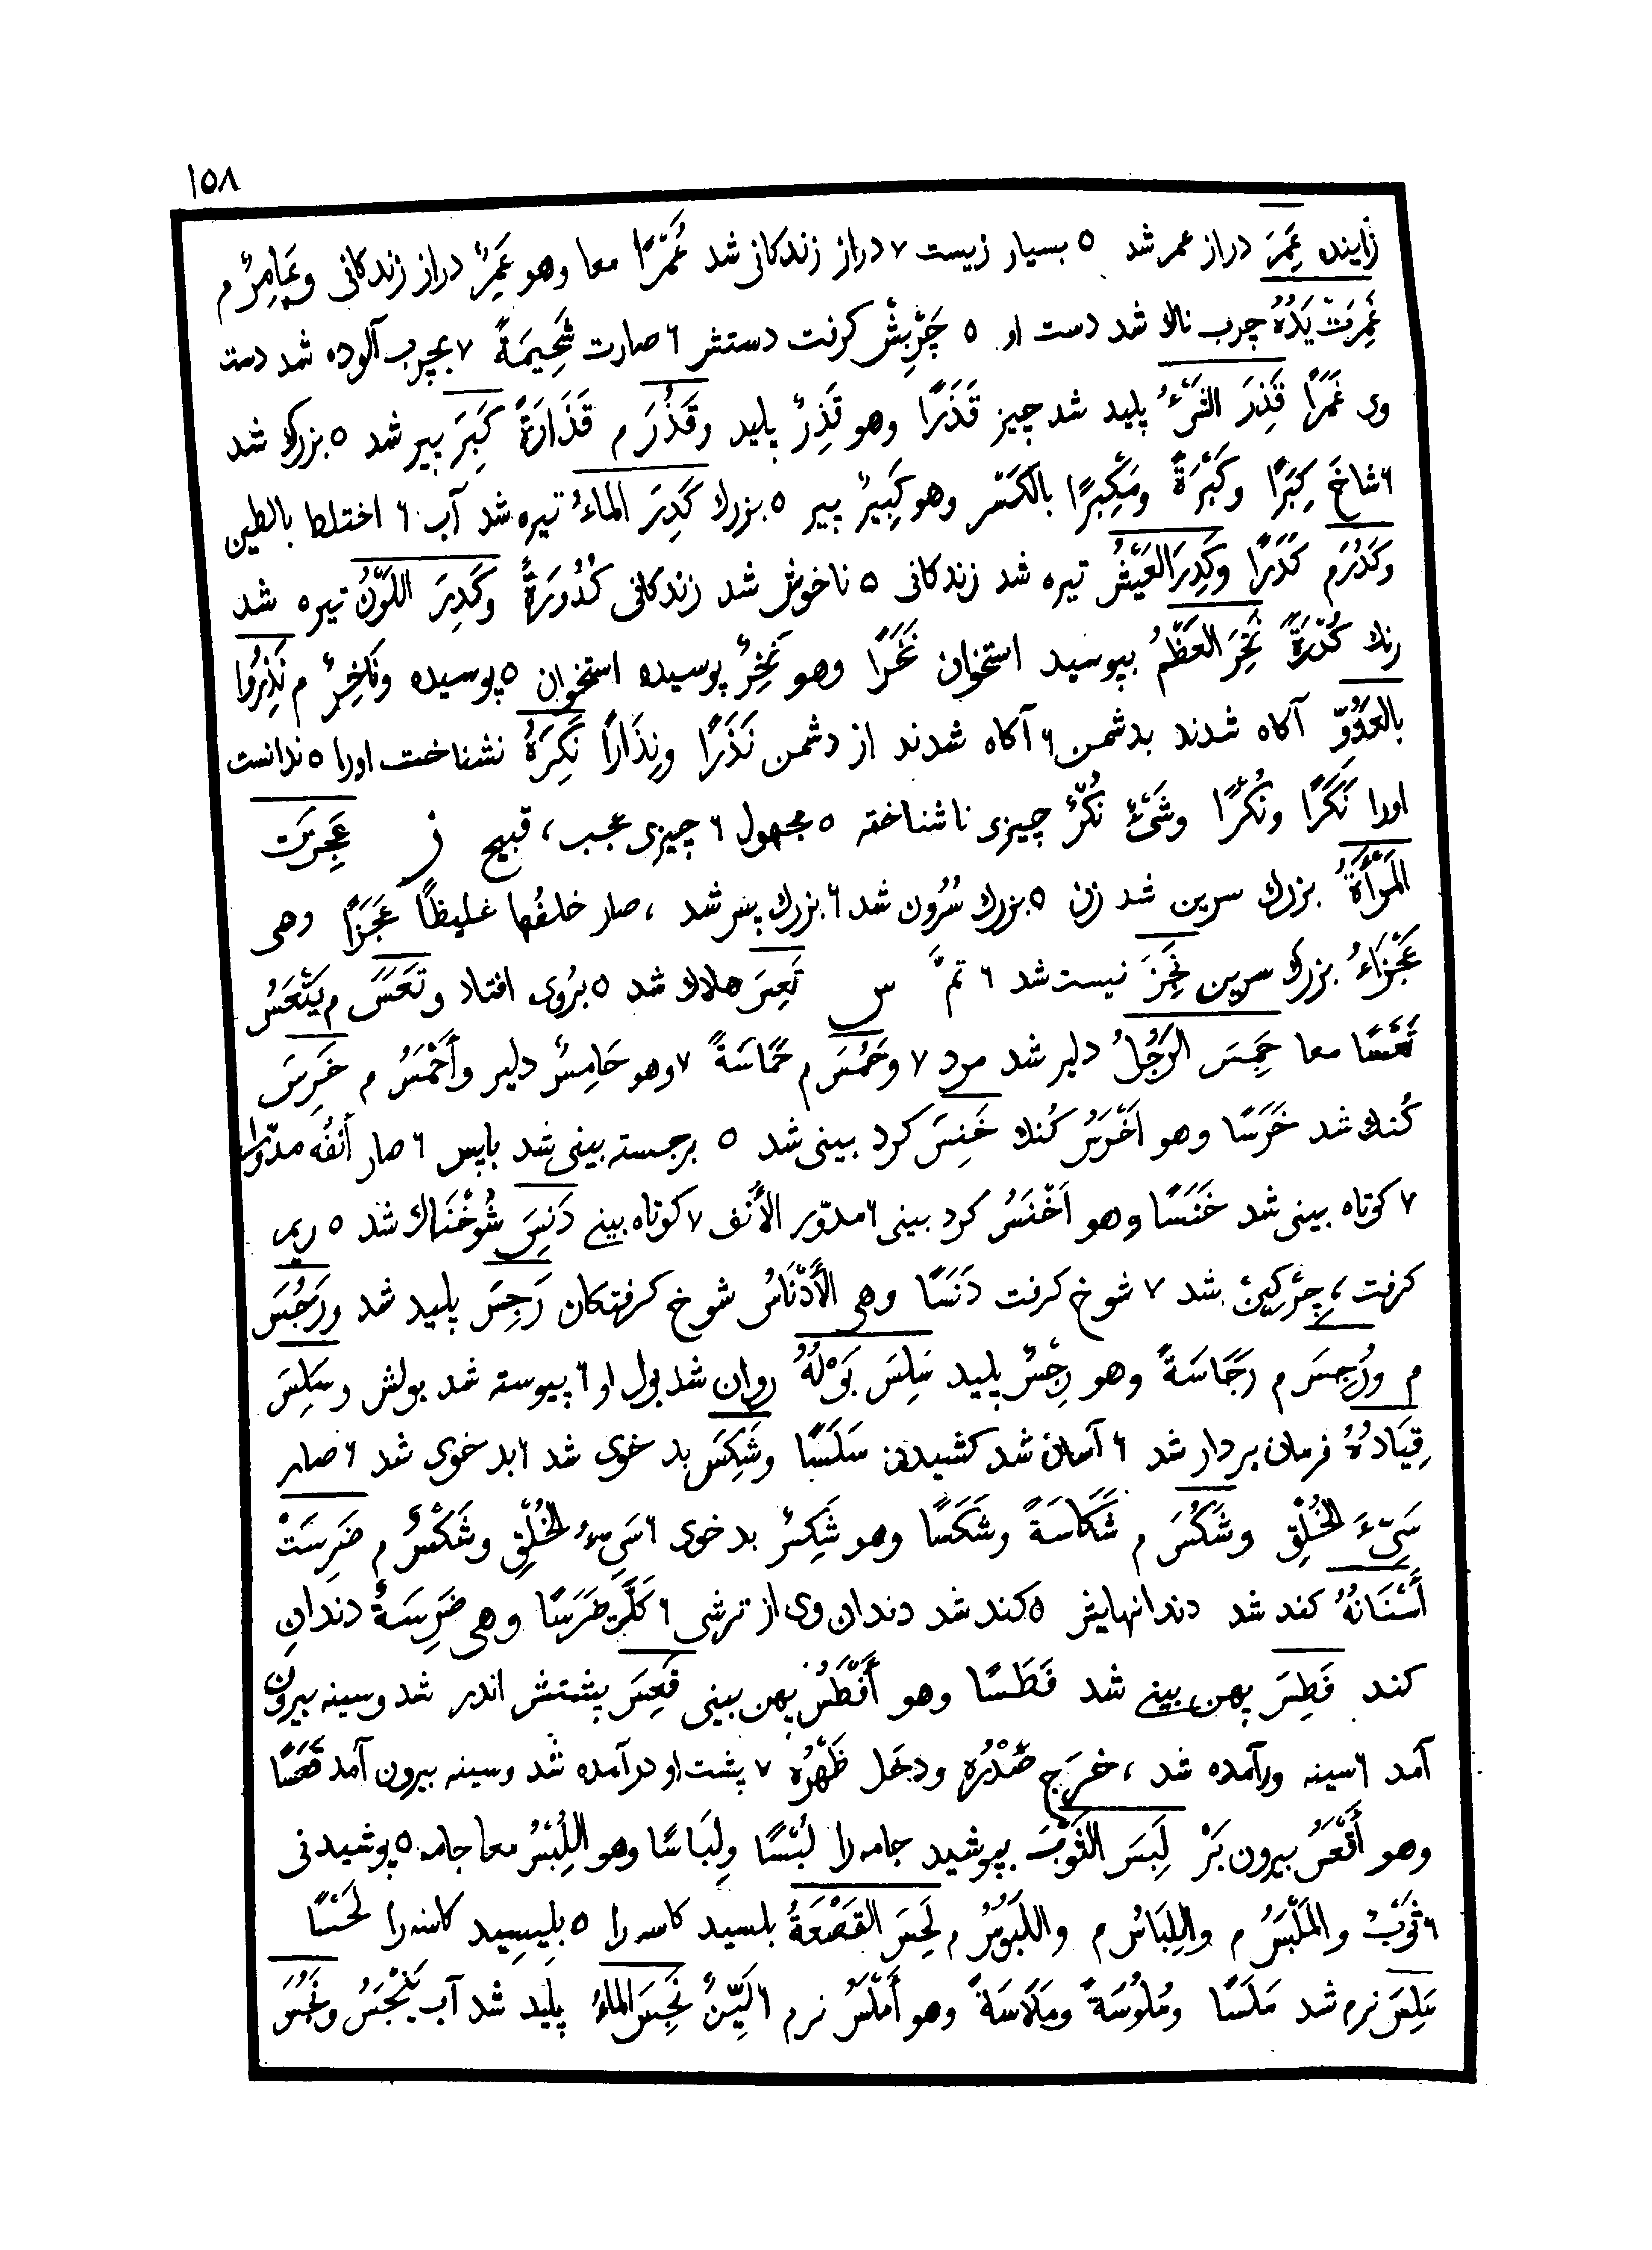 ١٥٨
زاینده عَمِرَ دراز عمر شد ٥ بسیار زیست ٧ دراز زندکانی شد عُمْرًا معا وهو عَمِرٌ دراز زندکانی وعَامِرٌ م
غَمِرَتْ یَدُهُ چرب ناک شد دست او ٥ چَرْبِش کرفت دستش ٦ صارت شَحِیمَةً ٧ بچرب آلوده شد دست
وی غَمَرًا قَذِرَ الشَّیْءُ پلید شد چیز قَذَرًا وهو قَذِرٌ پلید وقَذُرَ م قَذَارَةً کَبِرَ پیر شد ٥ بزرك شد
٦ شاخَ کِبَرًا وکَبْرَةً ومَکْبِرًا بالکَسْر وهو کَبِیرٌ پیر ٥ بزرك کَدِرَ الماءُ تیره شد آب ٦ اختلط بالطین
وکَدُرَ م کَدَرًا وکَدِرَ العَیْشُ تیره شد زندکانی ٥ ناخوش شد زندکانی کُدُورَةً وکَدِرَ اللَّوْنُ تیره شد
رنك کُدْرَةً نَخِرَ العَظْمُ بپوسید استخوان نَخَرًا وهو نَخِرٌ پوسیده استخوان ٥ پوسیده ونَاخِرٌ م نَذِرُوا
بالعَدُوِّ آکاه شدند بدشمن ٦ آکاه شدند از دشمن نَذَرًا ونِذَارًا نَکِرَهُ نشناخت اورا ٥ ندانست
اورا نَکَرًا ونُکْرًا وشَیْءٌ نُکْرٌ چیزی ناشناخته ٥ مجهول ٦ چیزی عجب، قبیح ز عَجِزَت
المَرْأَةُ بزرك سرین شد زن ٥ بزرك سُرُون شد ٦ بزرك پس شد ، صار خلفُها غلیظًا عَجَزًا وهی
عَجْزَاءُ بزرك سرین نَجِزَ نیست شد ٦ تمَّ س تَعِسَ هلاك شد ٥ برُوی افتاد وتَعَسَ م یَتْعَسُ
تَعْسًا معا حَمِسَ الرَّجُلُ دلیر شد مرد ٧ وحَمُسَ م حَمَاسَةً ٧ وهو حَامِسٌ دلیر وأَحْمَسُ م خَرِسَ
کُنك شد خَرَسًا وهو اَخْرَسُ کُنك خَنِسَ کرد بینی شد ٥ برجسته بینی شد باپس ٦ صار أَنفُه مدوّرا
٧ کوتاه بینی شد خَنَسًا وهو اَخْنَسُ کرد بینی ٦ مدوّر الأَنف ٧ کوتاه بینی دَنِسَ شُوخْنَاك شد ٥ ریم
کرفت ، چِرْکِین شد ٧ شوخ کرفت دَنَسًا وهی الأَدْنَاسُ شوخ کرفتکان رَجِسَ پلید شد ورَجُسَ
م ورُجِسَ م رَجَاسَةً وهو رِجْسٌ پلید سَلِسَ بَوْلُهُ روان شد بول او ٦ پیوسته شد بولش وسَلِسَ
قِیَادُهُ فرمان بردار شد ٦ آسان شد کشیدن سَلَسًا وشَکِسَ بد خوی شد ٦ بد خوی شد ٦ صار
سَیِّءَ الخُلُقِ وشَکُسَ م شَکَاسَةً وشَکَسًا وهو شَکِسٌ بد خوی ٦ سَیِّءُ الخُلُقِ وشَکْسٌ م ضَرِسَتْ
أَسْنَانُهُ کند شد دندانهایش ٥ کند شد دندان وی از ترشی ٦ کَلَّت ضَرَسًا وهی ضَرِسَةٌ دندان
کند فَطِسَ پهن بینی شد فَطَسًا وهو أَفْطَسُ پهن بینی قَعِسَ پشتش اندر شد وسینه بیرون
آمد ٦ سینه ورآمده شد ، خرَج صَدْرُه ودخَل ظَهْرُه ٧ پشت او درآمده شد وسینه بیرون آمد قَعَسًا
وهو أَقْعَسُ بیرون بَرْ لَبِسَ الثَّوْبَ بپوشید جامه را لُبْسًا ولِبَاسًا وهو اللِّبْسُ معا جامه ٥ پوشیدنی
٦ ثَوْبٌ والمَلْبَسُ م واللِّبَاسُ م واللَّبُوسُ م لَحِسَ القَصْعَةُ بلسید کاسه را ٥ بلیسید کاسه را لَحْسًا
مَلِسَ نرم شد مَلَسًا ومُلُوسَةً ومَلَاسَةً وهو أَمْلَسُ نرم ٦ لَیِّنٌ نَجِسَ الماءُ پلید شد آب یَنْجَسُ ونَجُسَ